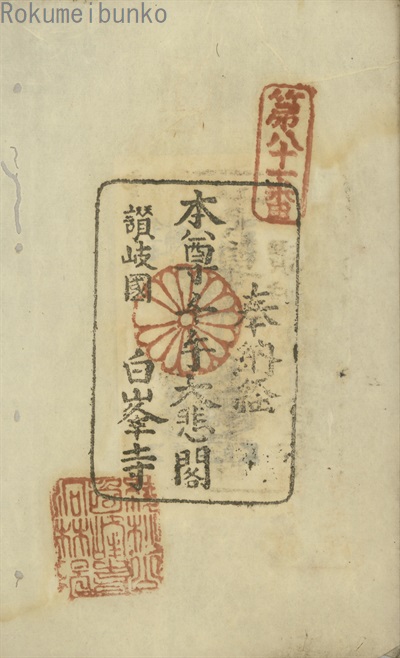 Rokumeibunko
第八十一番
奉納經
本尊千手大悲閣
讚岐國 白峯寺